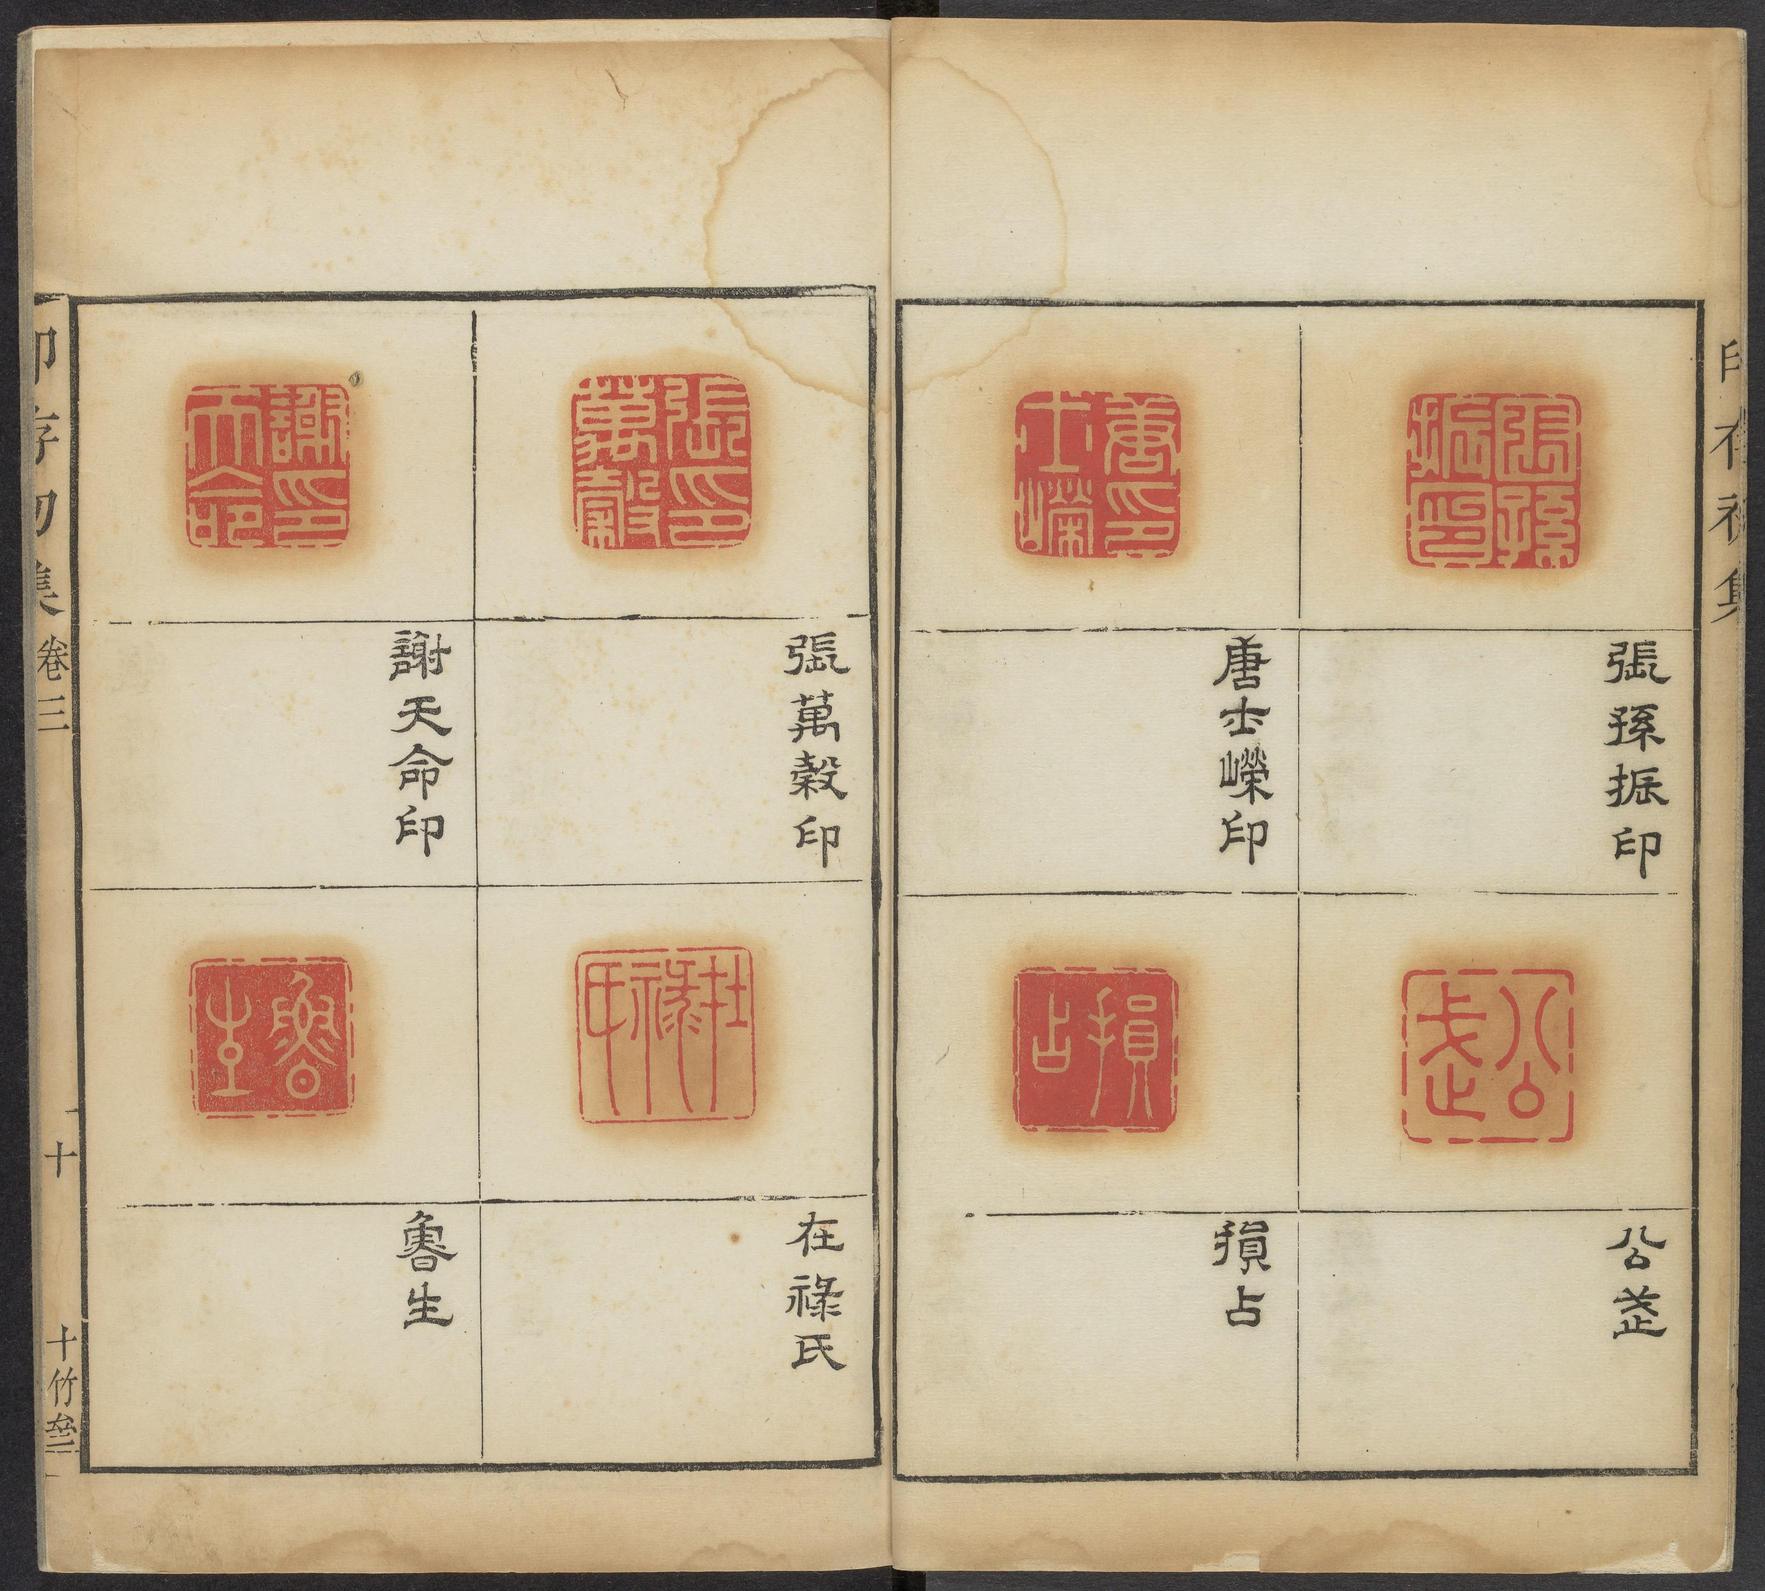 印存初集
張孫振印
唐士嶸印
公㞢
損占
張萬穀印
謝天命印
在祿氏
魯生
印存初集
卷三
十
十竹齋